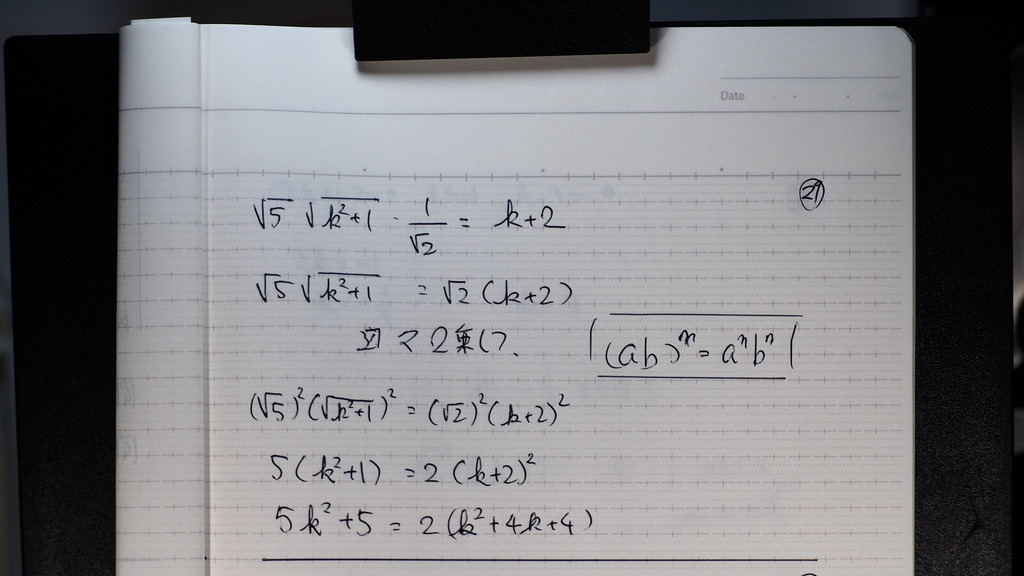 Date
㉑
√5 √(k²+1) · 1/√2 = k+2
√5 √(k²+1) = √2 (k+2)
2乗して.
(ab)ⁿ = aⁿbⁿ
(√5)²(√(k²+1))² = (√2)²(k+2)²
5(k²+1) = 2(k+2)²
5k²+5 = 2(k²+4k+4)